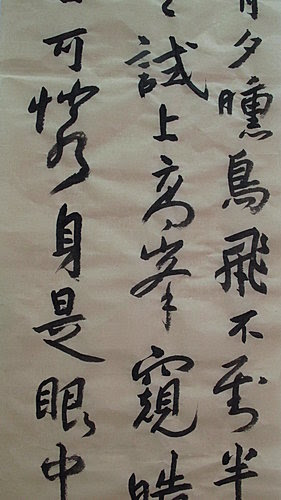 夕曛鳥飛不到半
試上高峯窺皓
可憐身是眼中